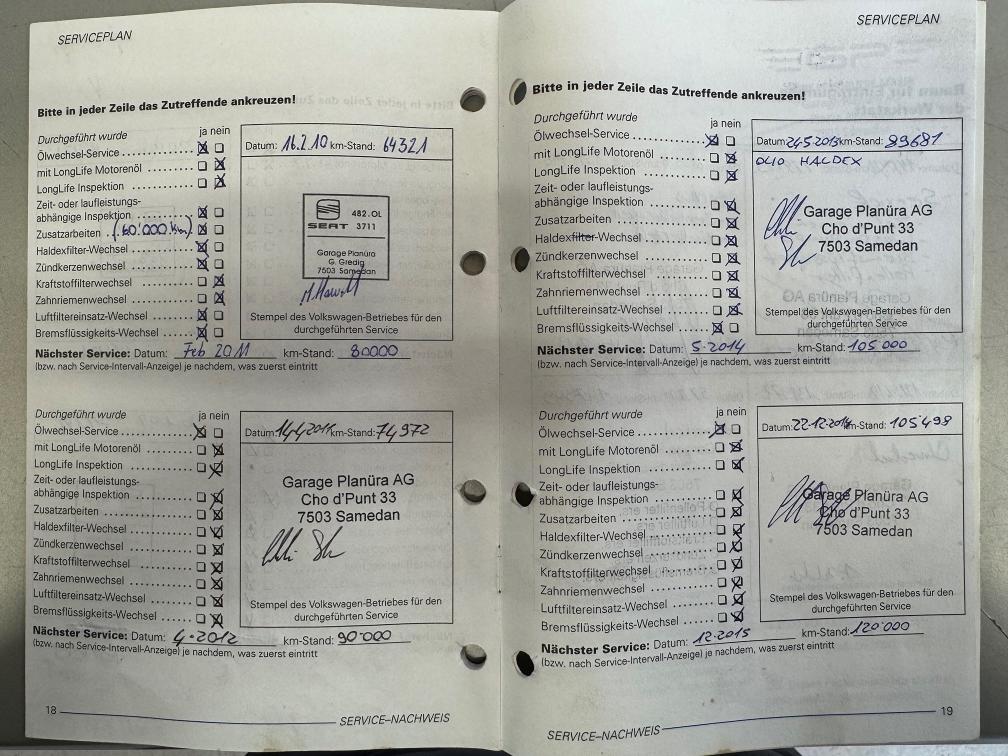 SERVICEPLAN
Bitte in jeder Zeile das Zutreffende ankreuzen!
Durchgeführt wurde ja nein
Ölwechsel-Service
mit LongLife Motorenöl
LongLife Inspektion
Zeit- oder laufleistungs-
abhängige Inspektion
Zusatzarbeiten (60.000 km)
Haldexfilter-Wechsel
Zündkerzenwechsel
Kraftstoffilterwechsel
Zahnriemenwechsel
Luftfiltereinsatz-Wechsel
Bremsflüssigkeits-Wechsel
Datum: 16.2.10 km-Stand: 64321
482.OL
SEAT 3711
Garage Planüra
G. Gredig
7503 Samedan
Stempel des Volkswagen-Betriebes für den
durchgeführten Service
Nächster Service: Datum: Feb 2011 km-Stand: 80000
(bzw. nach Service-Intervall-Anzeige) je nachdem, was zuerst eintritt
Durchgeführt wurde ja nein
Ölwechsel-Service
mit LongLife Motorenöl
LongLife Inspektion
Zeit- oder laufleistungs-
abhängige Inspektion
Zusatzarbeiten
Haldexfilter-Wechsel
Zündkerzenwechsel
Kraftstoffilterwechsel
Zahnriemenwechsel
Luftfiltereinsatz-Wechsel
Bremsflüssigkeits-Wechsel
Datum: 14.4.2011 km-Stand: 74572
Garage Planüra AG
Cho d'Punt 33
7503 Samedan
Stempel des Volkswagen-Betriebes für den
durchgeführten Service
Nächster Service: Datum: 4.2012 km-Stand: 90'000
(bzw. nach Service-Intervall-Anzeige) je nachdem, was zuerst eintritt
18
SERVICE–NACHWEIS
SERVICEPLAN
Bitte in jeder Zeile das Zutreffende ankreuzen!
Durchgeführt wurde ja nein
Ölwechsel-Service
mit LongLife Motorenöl
LongLife Inspektion
Zeit- oder laufleistungs-
abhängige Inspektion
Zusatzarbeiten
Haldexfilter-Wechsel
Zündkerzenwechsel
Kraftstoffilterwechsel
Zahnriemenwechsel
Luftfiltereinsatz-Wechsel
Bremsflüssigkeits-Wechsel
Datum: 24.5.2013 km-Stand: 89681
OLIO HALDEX
Garage Planüra AG
Cho d'Punt 33
7503 Samedan
Stempel des Volkswagen-Betriebes für den
durchgeführten Service
Nächster Service: Datum: 5.2014 km-Stand: 105'000
(bzw. nach Service-Intervall-Anzeige) je nachdem, was zuerst eintritt
Durchgeführt wurde ja nein
Ölwechsel-Service
mit LongLife Motorenöl
LongLife Inspektion
Zeit- oder laufleistungs-
abhängige Inspektion
Zusatzarbeiten
Haldexfilter-Wechsel
Zündkerzenwechsel
Kraftstoffilterwechsel
Zahnriemenwechsel
Luftfiltereinsatz-Wechsel
Bremsflüssigkeits-Wechsel
Datum: 22.12.2014 km-Stand: 105498
Garage Planüra AG
Cho d'Punt 33
7503 Samedan
Stempel des Volkswagen-Betriebes für den
durchgeführten Service
Nächster Service: Datum: 12.2015 km-Stand: 120'000
(bzw. nach Service-Intervall-Anzeige) je nachdem, was zuerst eintritt
SERVICE–NACHWEIS
19